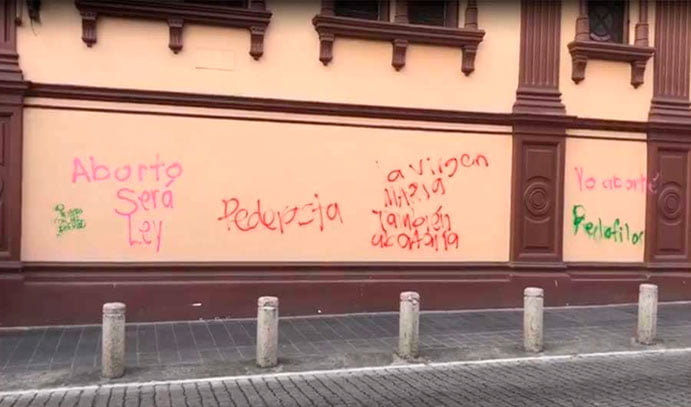 Aborto
Será
Ley
Pederasia
a virgen
María
También
abortaría
Yo aborté
Pedofilos